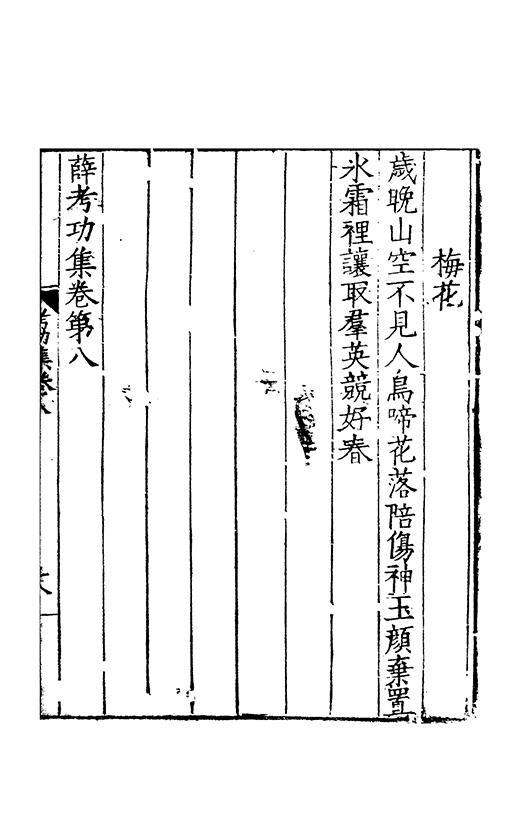 梅花
歲晚山空不見人鳥啼花落陪傷神玉顏棄置
氷霜裡讓取羣英競好春
薛考功集卷第八